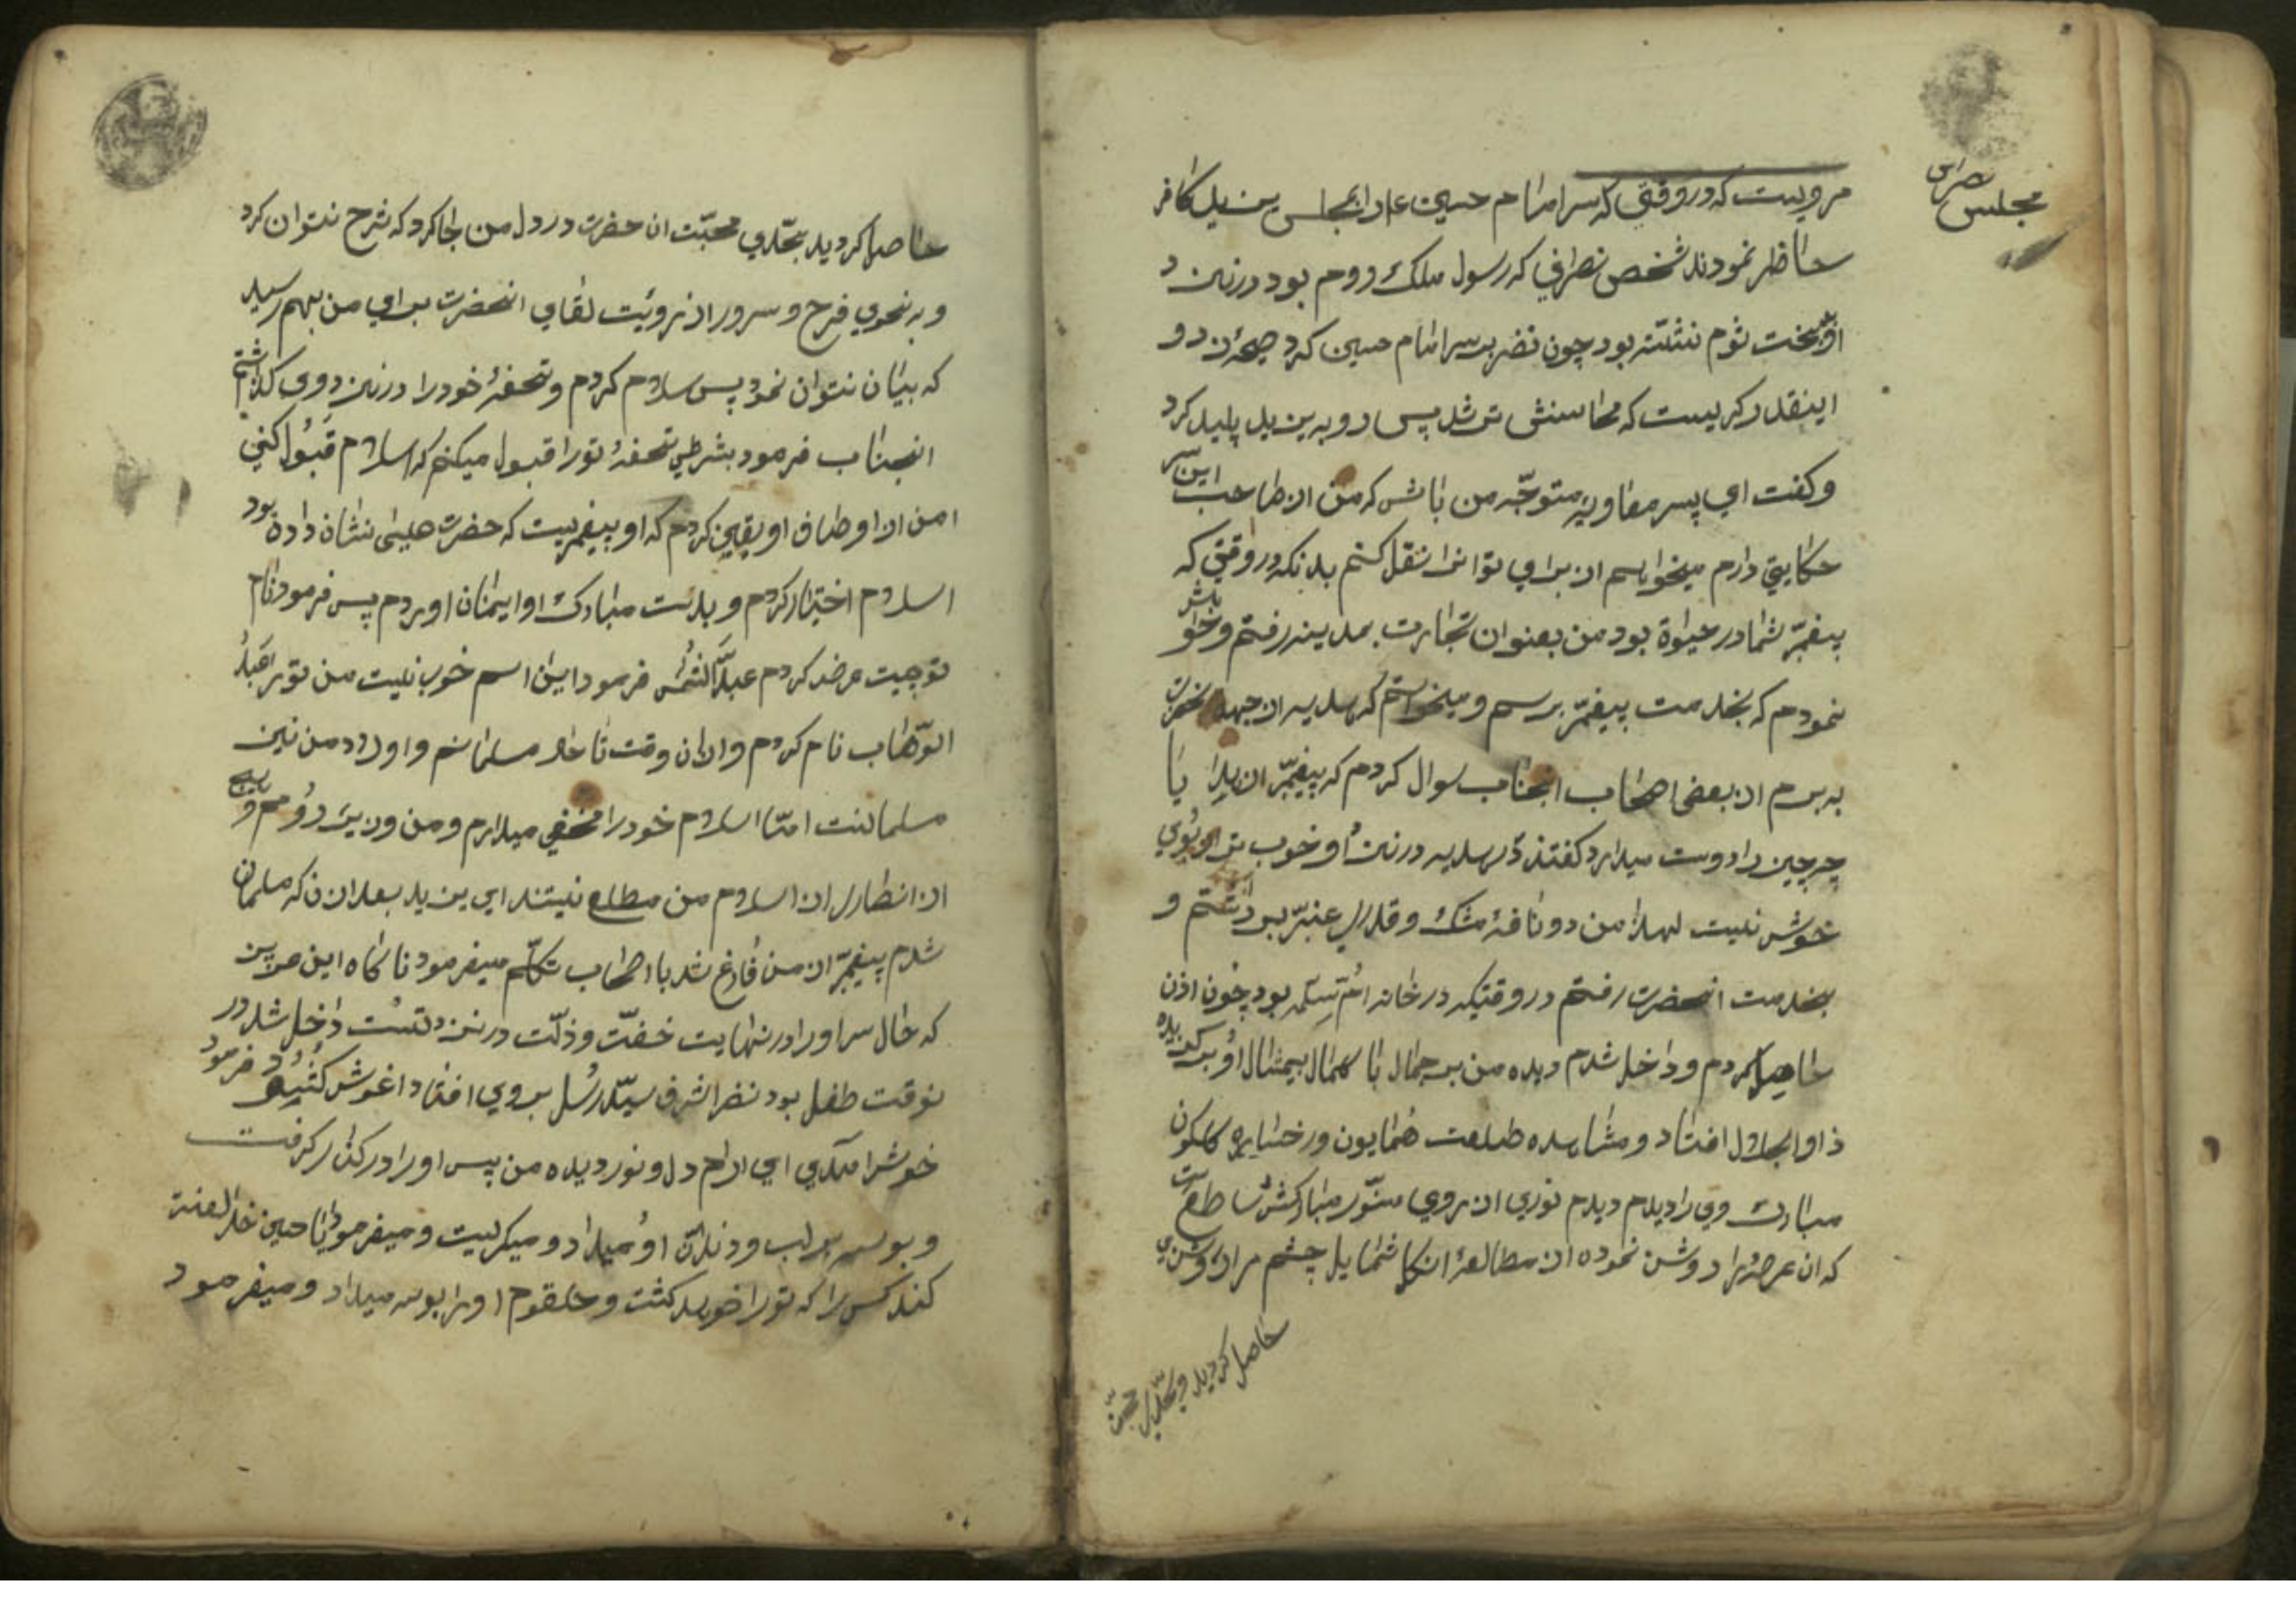 مجلس نصرانی
مرویست که در وقتی که سر امام حسین ع را بمجلس یزید کافر
حاظر نمودند شخص نصرانی که رسول ملک روم بود در نزد
او بتخت شوم نشسته بود چون نضر بسر امام حسین کرد صیحهٔ زد و
اینقدر کریست که محاسنش تر شد پس رو به یزید پلید کرد
و کفت ای پسر معاویه متوجّه من باش که من از صاحب این سر
حکایتی دارم میخواهم از برای تو انرا نقل کنم بدانکه در وقتی که
پیغمبّر شما در حیوة بود من بعنوان تجارت بمدینه رفتم و خواهش
نمودم که بخدمت پیغمبّر برسم و میخواستم که هدیه از جهة انحضرت
به برم از بعضی اصحاب انجناب سوال کردم که پیغمبّر از هدایا
چه چیز را دوست میدارد کفتند هدیه در نزد او خوب تر از بوی
خوش نیست لهذا من دو نافهٔ مشک و قدری عنبّر برداشتم و
بخدمت انحضرت رفتم در وقتیکه در خانه امّ سلمه بود چون اذن
حاصل کردم و داخل شدم دیده من بر جمال با کمال بیمثال او بر کزیده
ذو الجلال افتاد و مشاهده طلعت همایون و رخساره کلکون
مبارک وی را دیدم دیدم نوری از روی منّور مبارکش ساطع است
که ان عرصه را روشن نموده از مطالعهٔ ان شمایل چشم مرا روشنی
حاصل کردید و بحدّی محبّت
حاصل کردید بحّدی محبّت ان حضرت در دل من جا کرد که شرح نتوان کرد
و به نحوی فرح و سرور از رویٔت لقای انحضرت برای من بهم رسید
که بیان نتوان نمود پس سلام کردم و تحفهٔ خود را در نزد وی کذاشتم
انجناب فرمود بشرطی تحفهٔ تو را قبول میکنم که اسلام قبول کنی
من از اوصاف او یقین کردم که او پیغمبریست که حضرت عیسی نشان داده بود
اسلام اختیار کردم و بدست مبارک او ایمان اوردم پس فرمود نام
تو چیست عرض کردم عبد الشمس فرمود این اسم خوب نیست من تو را عبد
الوّهاب نام کردم و از ان وقت تا حال مسلمانم و اولاد من نیز
مسلمانند امّا اسلام خود را مخفی میدارم و من وزیر پادشاه رومم و
از انصاری از اسلام من مطلع نیستند ای یزید بعد از ان که مسلمان
شدم پیغمبّر از من فارغ شد با اصحاب تکلّم میفرمود ناکاه این عزیز
که حال سر او را در نهایت خفّت و ذلّت در نزد تست داخل شد در
نوقت طفل بود نضر اشرف سیّد رسُل بروی افتاد اغوش کشود فرمود
خوش امدی ای ارام دل و نور دیده من پس او را در کنار کرفت
و بوسه بر لب و دندان او میداد و میکریست و میفرمود یا حسین خدا لعنت
کند کسی را که تو را خواهد کشت و حلقوم او را بوسه میداد و میفرمود